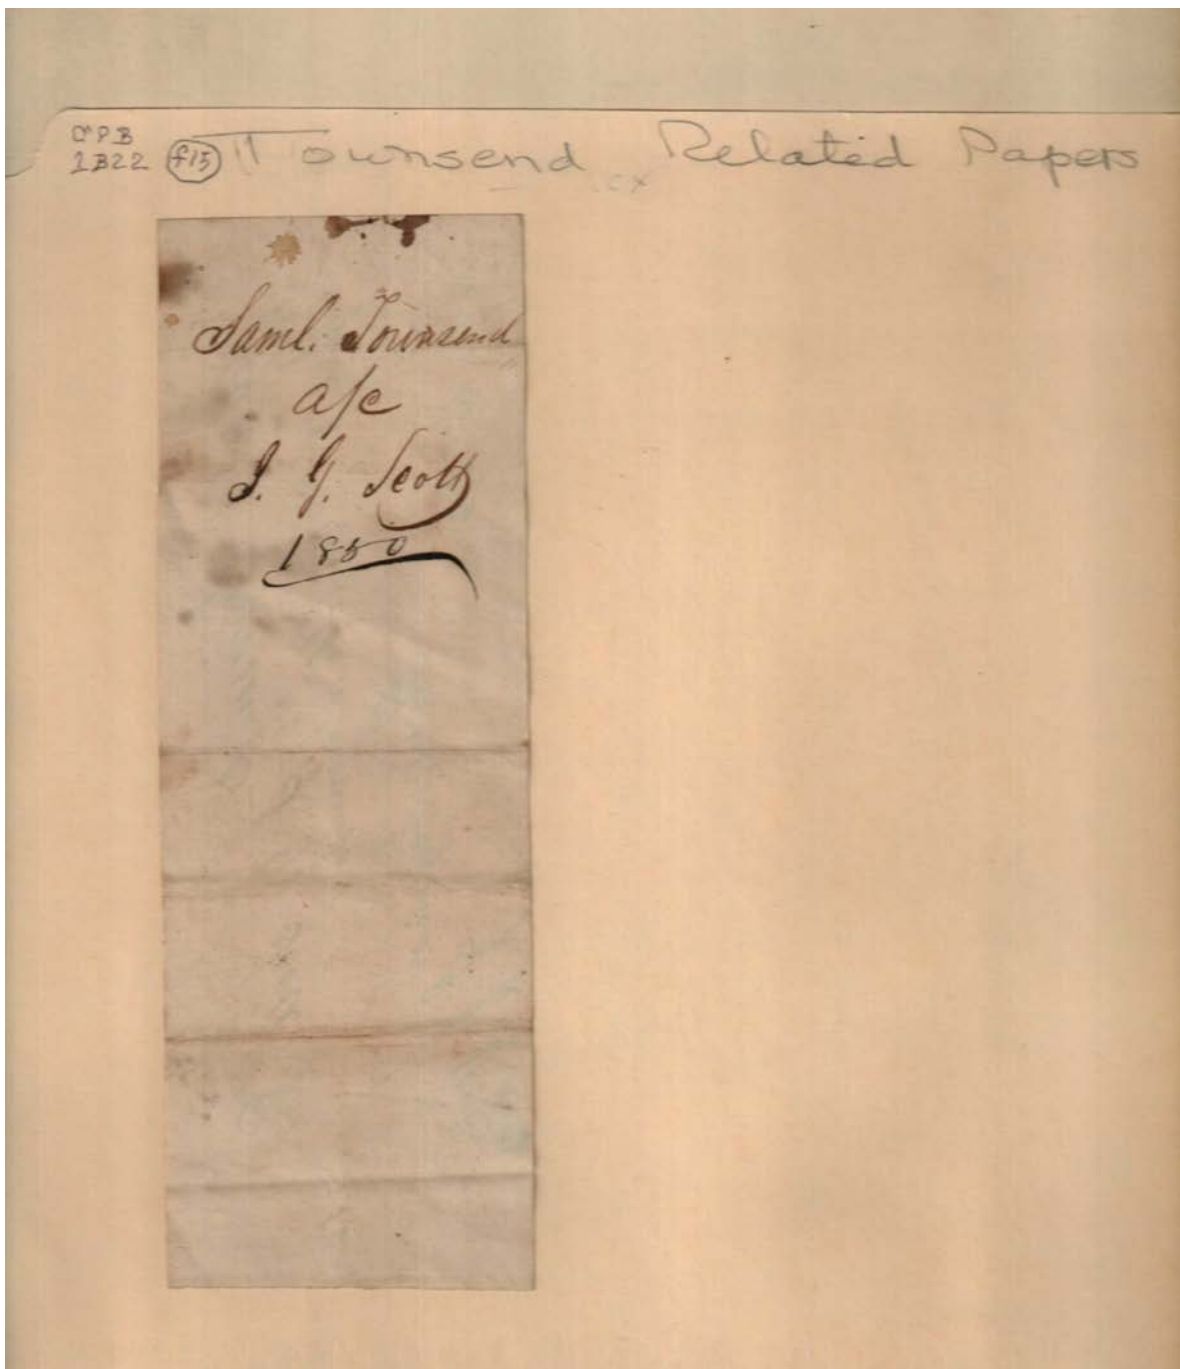 CPB
1B22 f15 Townsend Related Papers
Saml. Townsend
a/c
J. G. Scott
1850